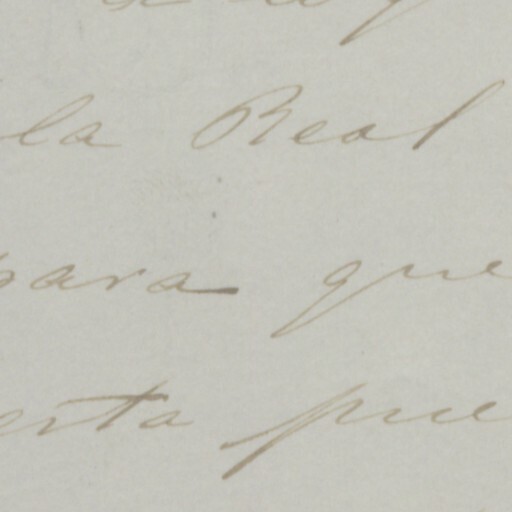 la Real
para que
erta pue